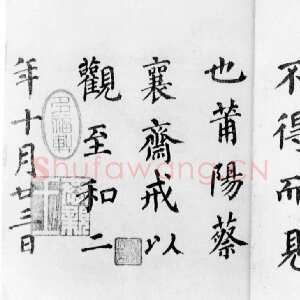 不得而見
也莆陽蔡
襄齋戒以
觀至和二
年十月廿三日
Shufawang.CN